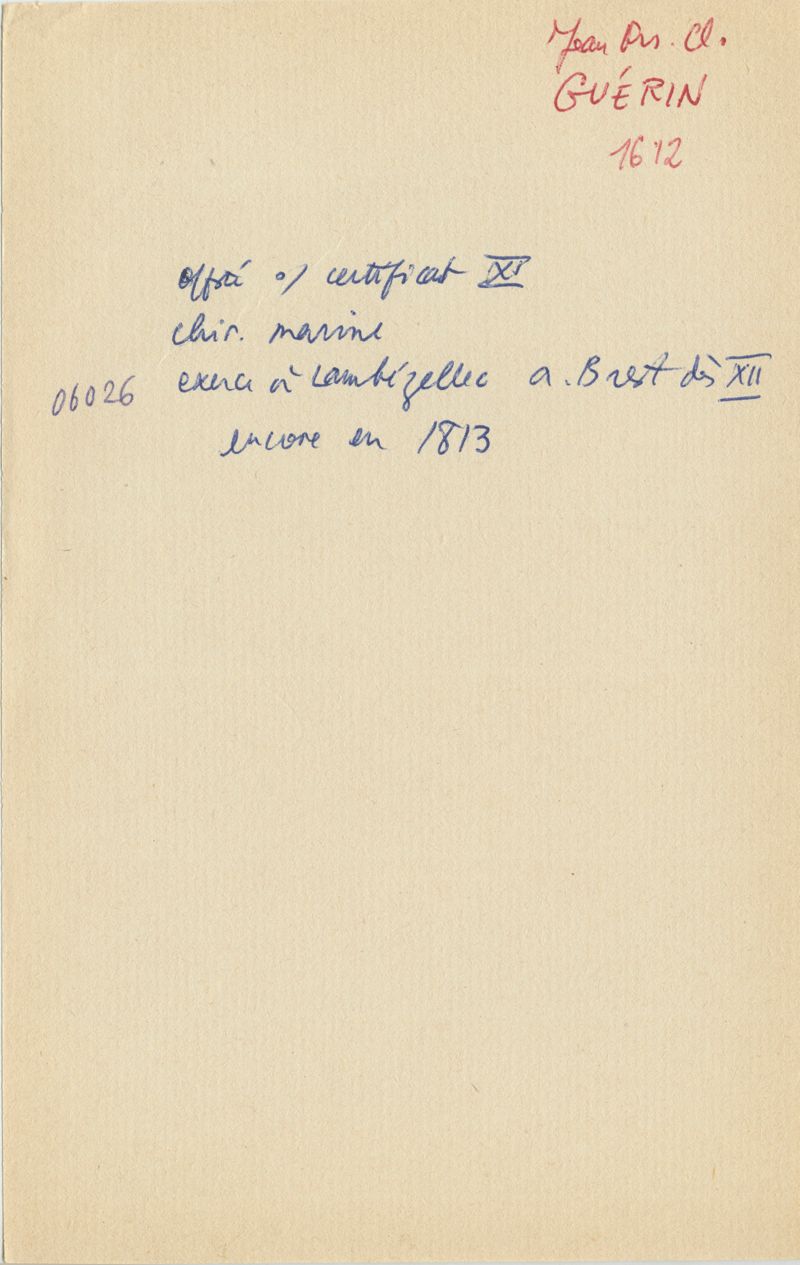 Jean Frs. Cl.
GUÉRIN
1612
offic. s/ certificat XI
chir. marine
06026 exerce à Lambézellec a. Brest dès XII
encore en 1813